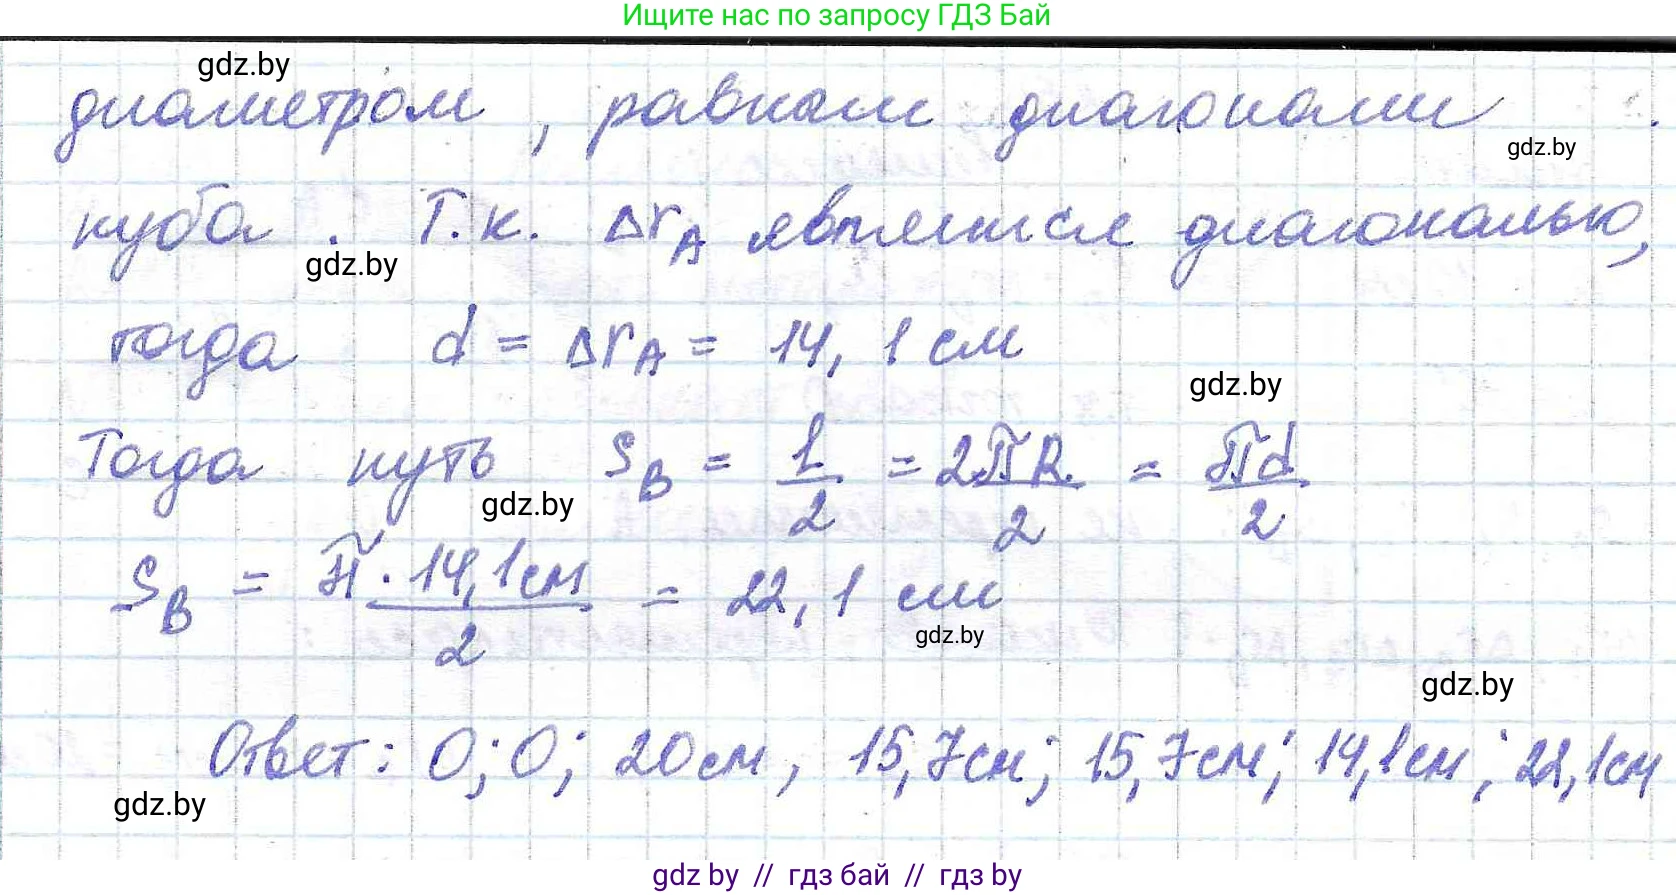 Ищите нас по запросу ГДЗ Бай
gdz.by
диаметром, равным диагонали
gdz.by
куба. Т.к. ΔrA является диагональю,
gdz.by
тогда d = ΔrA = 14,1 см
gdz.by
Тогда путь SB = l/2 = 2πR/2 = πd/2
gdz.by
SB = π·14,1см/2 = 22,1 см
gdz.by
gdz.by
Ответ: 0; 0; 20см, 15,7см; 15,7см; 14,1см; 22,1см
gdz.by
gdz by // гдз бай // гдз by